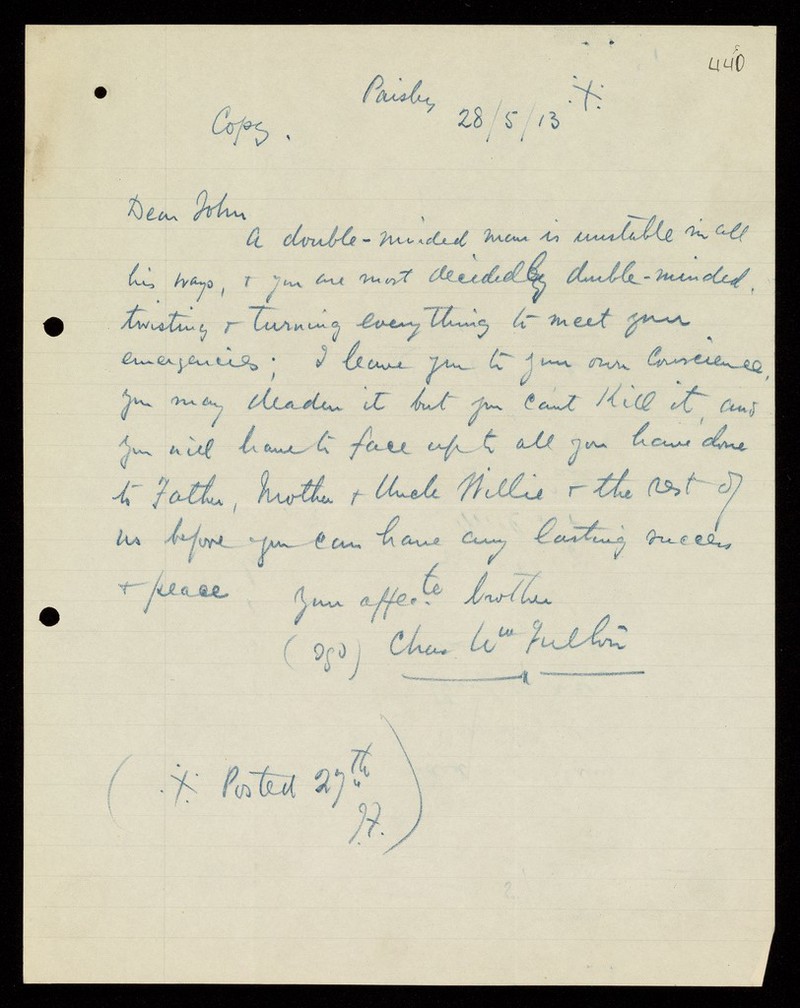 440
Paisley 28/5/13 .X.
Copy.
Dear John
A double-minded man is unstable in all
his ways, + you are most decidedly double-minded,
twisting + turning everything to meet your
emergencies; I leave you to your own Conscience,
you may deaden it but you can't Kill it, and
you will have to face up to all you have done
to Father, Mother + Uncle Willie + the rest of
us before you can have any lasting success
+ peace
Your affecte brother
(sgd) Chas Wm Fulton
( .X. Posted 27th
J.F. )